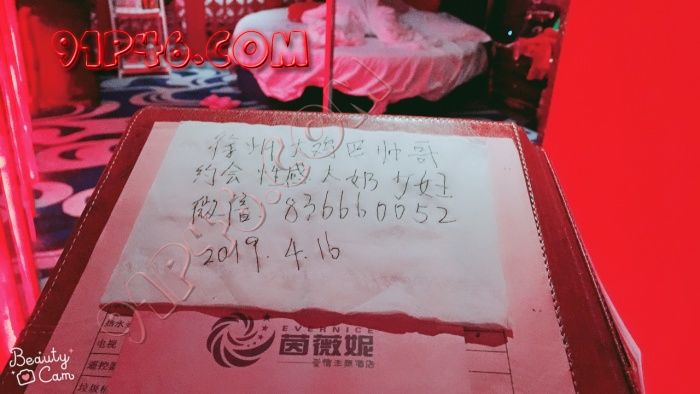 91P46.COM
徐州大鸡巴帅哥
约会性感人奶少妇
微信 836660052
2019.4.16
热水
电视
遥控器
垃圾桶
EVERNICE
茵薇妮
爱情主题酒店
Beauty
Cam